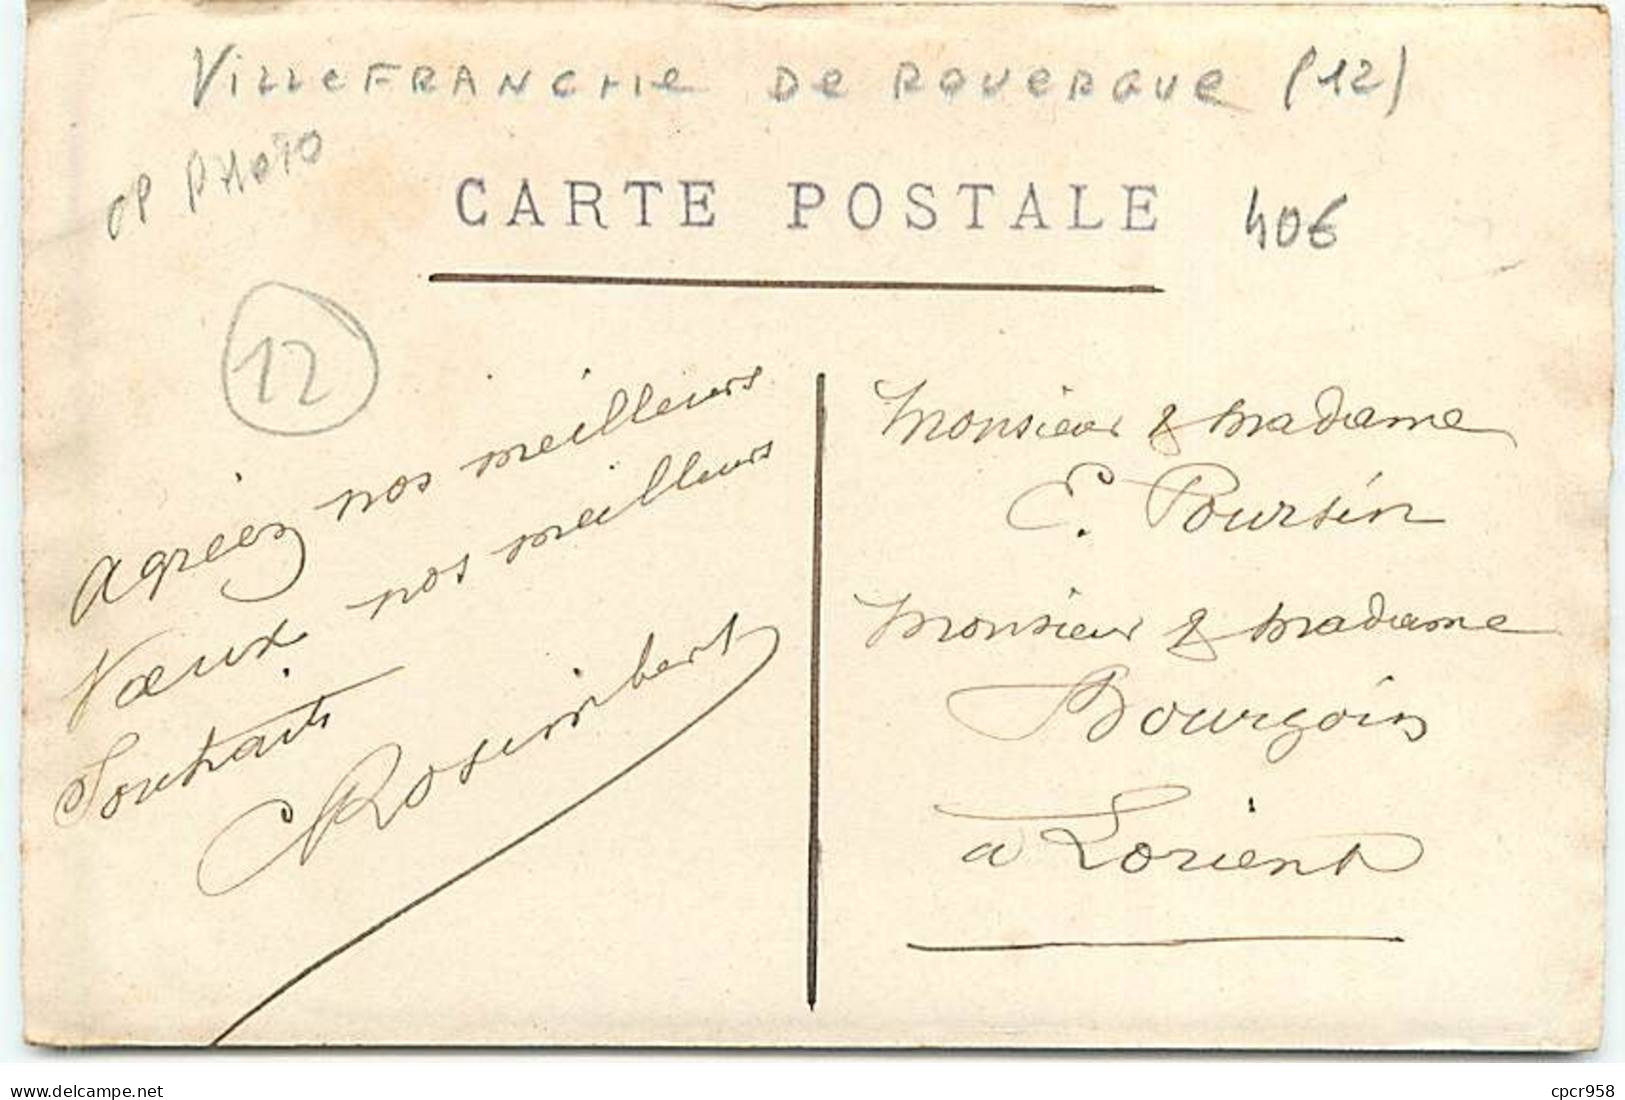 VILLEFRANCHE DE ROUERGUE (12)
CP PHOTO
CARTE POSTALE
40€
12
Agréez nos meilleurs
Vœux nos meilleurs
Souhaits
Rosimbert
Monsieur & Madame
E. Poursin
Monsieur & Madame
Bourgoin
à Lorient
www.delcampe.net
cpcr958